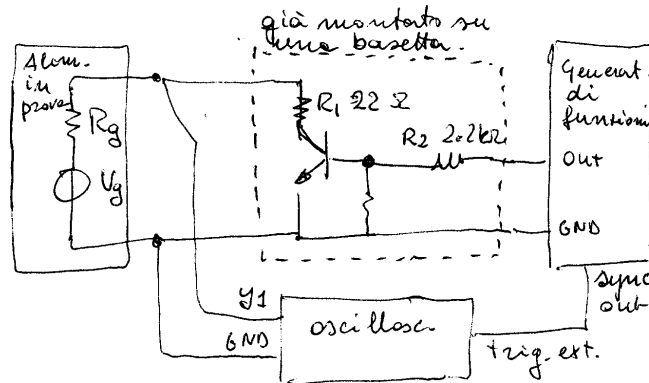 già montato su
una basetta.
Alim.
in
prova
Rg
Vg
R1 22 Ω
R2 2.2kΩ
Generat.
di
funzioni
OUT
GND
sync
out
y1
GND
oscillosc.
trig. ext.